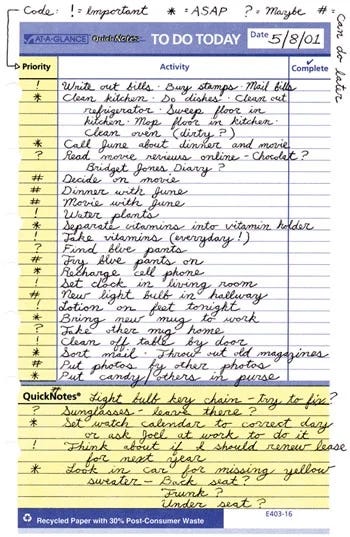 Code: ! = Important * = ASAP ? = Maybe # = Can do later
AT-A-GLANCE QuickNotes TO DO TODAY Date 5/8/01
Priority Activity ✓ Complete
! Write out bills · Buy stamps · Mail bills
* Clean kitchen · Do dishes · Clean out
refrigerator · Sweep floor in
kitchen · Mop floor in kitchen ·
Clean oven (dirty?)
* Call June about dinner and movie
? Read movie reviews online - Chocolat?
Bridget Jones Diary?
# Decide on movie
# Dinner with June
# Movie with June
! Water plants
* Separate vitamins into vitamin holder
! Take vitamins (everyday!)
? Find blue pants
# Try blue pants on
* Recharge cell phone
! Set clock in living room
# New light bulb in hallway
! Lotion on feet tonight
* Bring new mug to work
? Take other mug home
! Clean off table by door
* Sort mail · Throw out old magazines
# Put photos by other photos
* Put candy/others in purse
QuickNotes® # Light bulb key chain - try to fix?
? Sunglasses - leave there?
* Set watch calendar to correct day
or ask Joel at work to do it
! Think about if I should renew lease
for next year
* Look in car for missing yellow
sweater - Back seat?
Trunk?
Under seat?
Recycled Paper with 30% Post-Consumer Waste E403-16